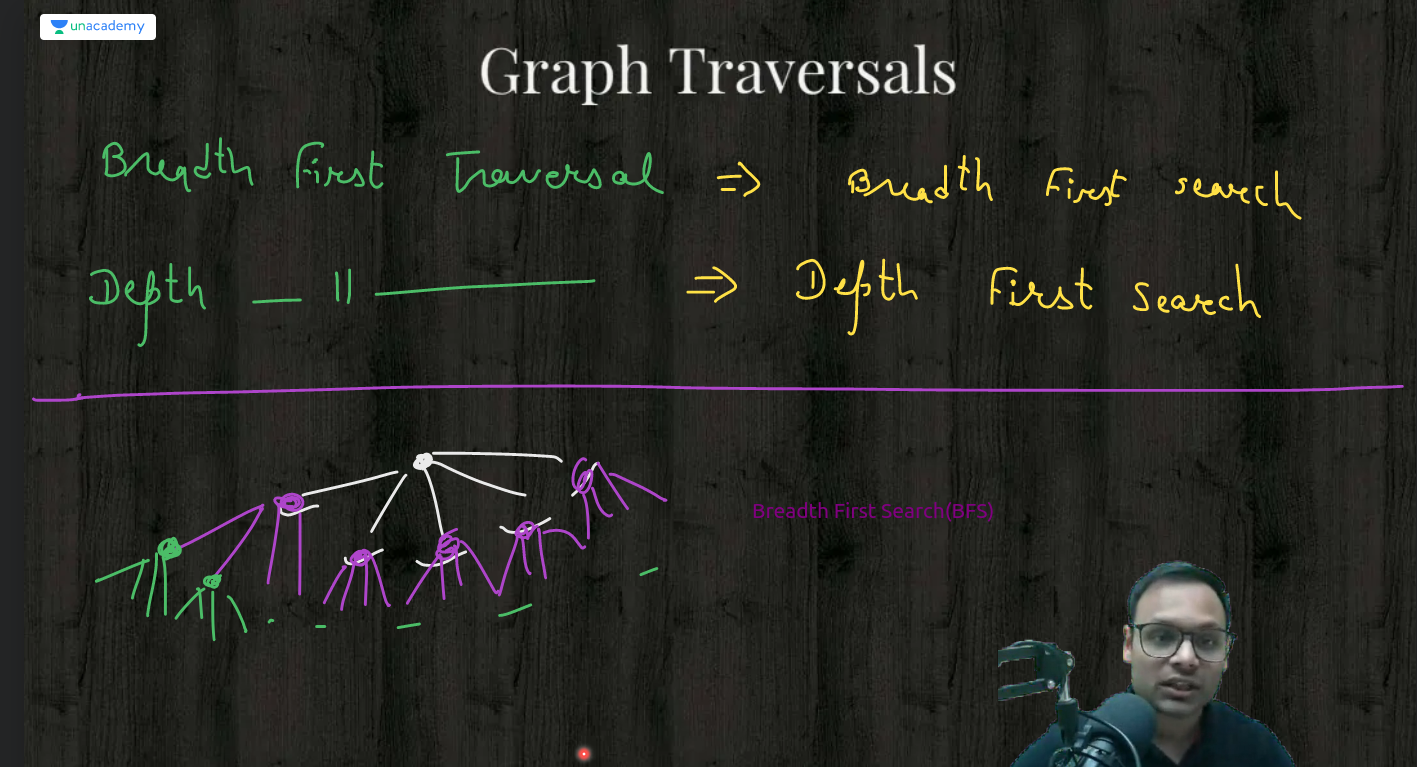 unacademy
Graph Traversals
Breadth First Traversal ⇒ Breadth First search
Depth — 11 ——— ⇒ Depth First Search
Breadth First Search(BFS)